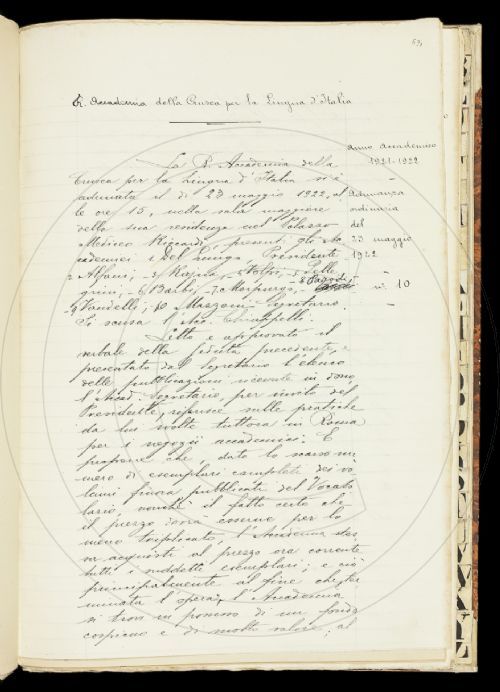 69,
R. Accademia della Crusca per la Lingua d'Italia
Anno Accademico
1921-1922
–
Adunanza
ordinaria
del
23 maggio
1922
n.° 10
–
La R. Accademia della
Crusca per la Lingua d'Italia si è
adunata il dì 23 maggio 1922, al
le ore 15, nella sala maggiore
della sua residenza nel Palazzo
Mediceo Riccardi, presenti gli Ac
cademici 1 Del Lungo, Presidente
2 Alfani; – 3 Rajna, – 4 Volpi, – 5 Pelle
grini; – 6 Barbi, – 7 Morpurgo, – 8 Parodi,
– 9 Vandelli; – 10 Mazzoni Segretario.
Si scusa l'Acc. Chiappelli.
Letto e approvato il
verbale della seduta precedente, e
presentato dal Segretario l'elenco
delle pubblicazioni ricevute in dono
l'Accad. Segretario, per invito del
Presidente, riferisce sulle pratiche
da lui svolte tuttora in Roma
per i negozii accademici. E
propone che, dato lo scarso nu
mero di esemplari completi dei vo
lumi finora pubblicati del Vocabo
lario, nonché il fatto certo che
il prezzo dovrà esserne per lo
meno triplicato, l'Accademia stes
sa acquisti al prezzo ora corrente
tutti i suddetti esemplari; e ciò
principalmente al fine che, ter
minata l'opera, l'Accademia
si trovi in possesso di un fondo
cospicuo e di molto valore; al